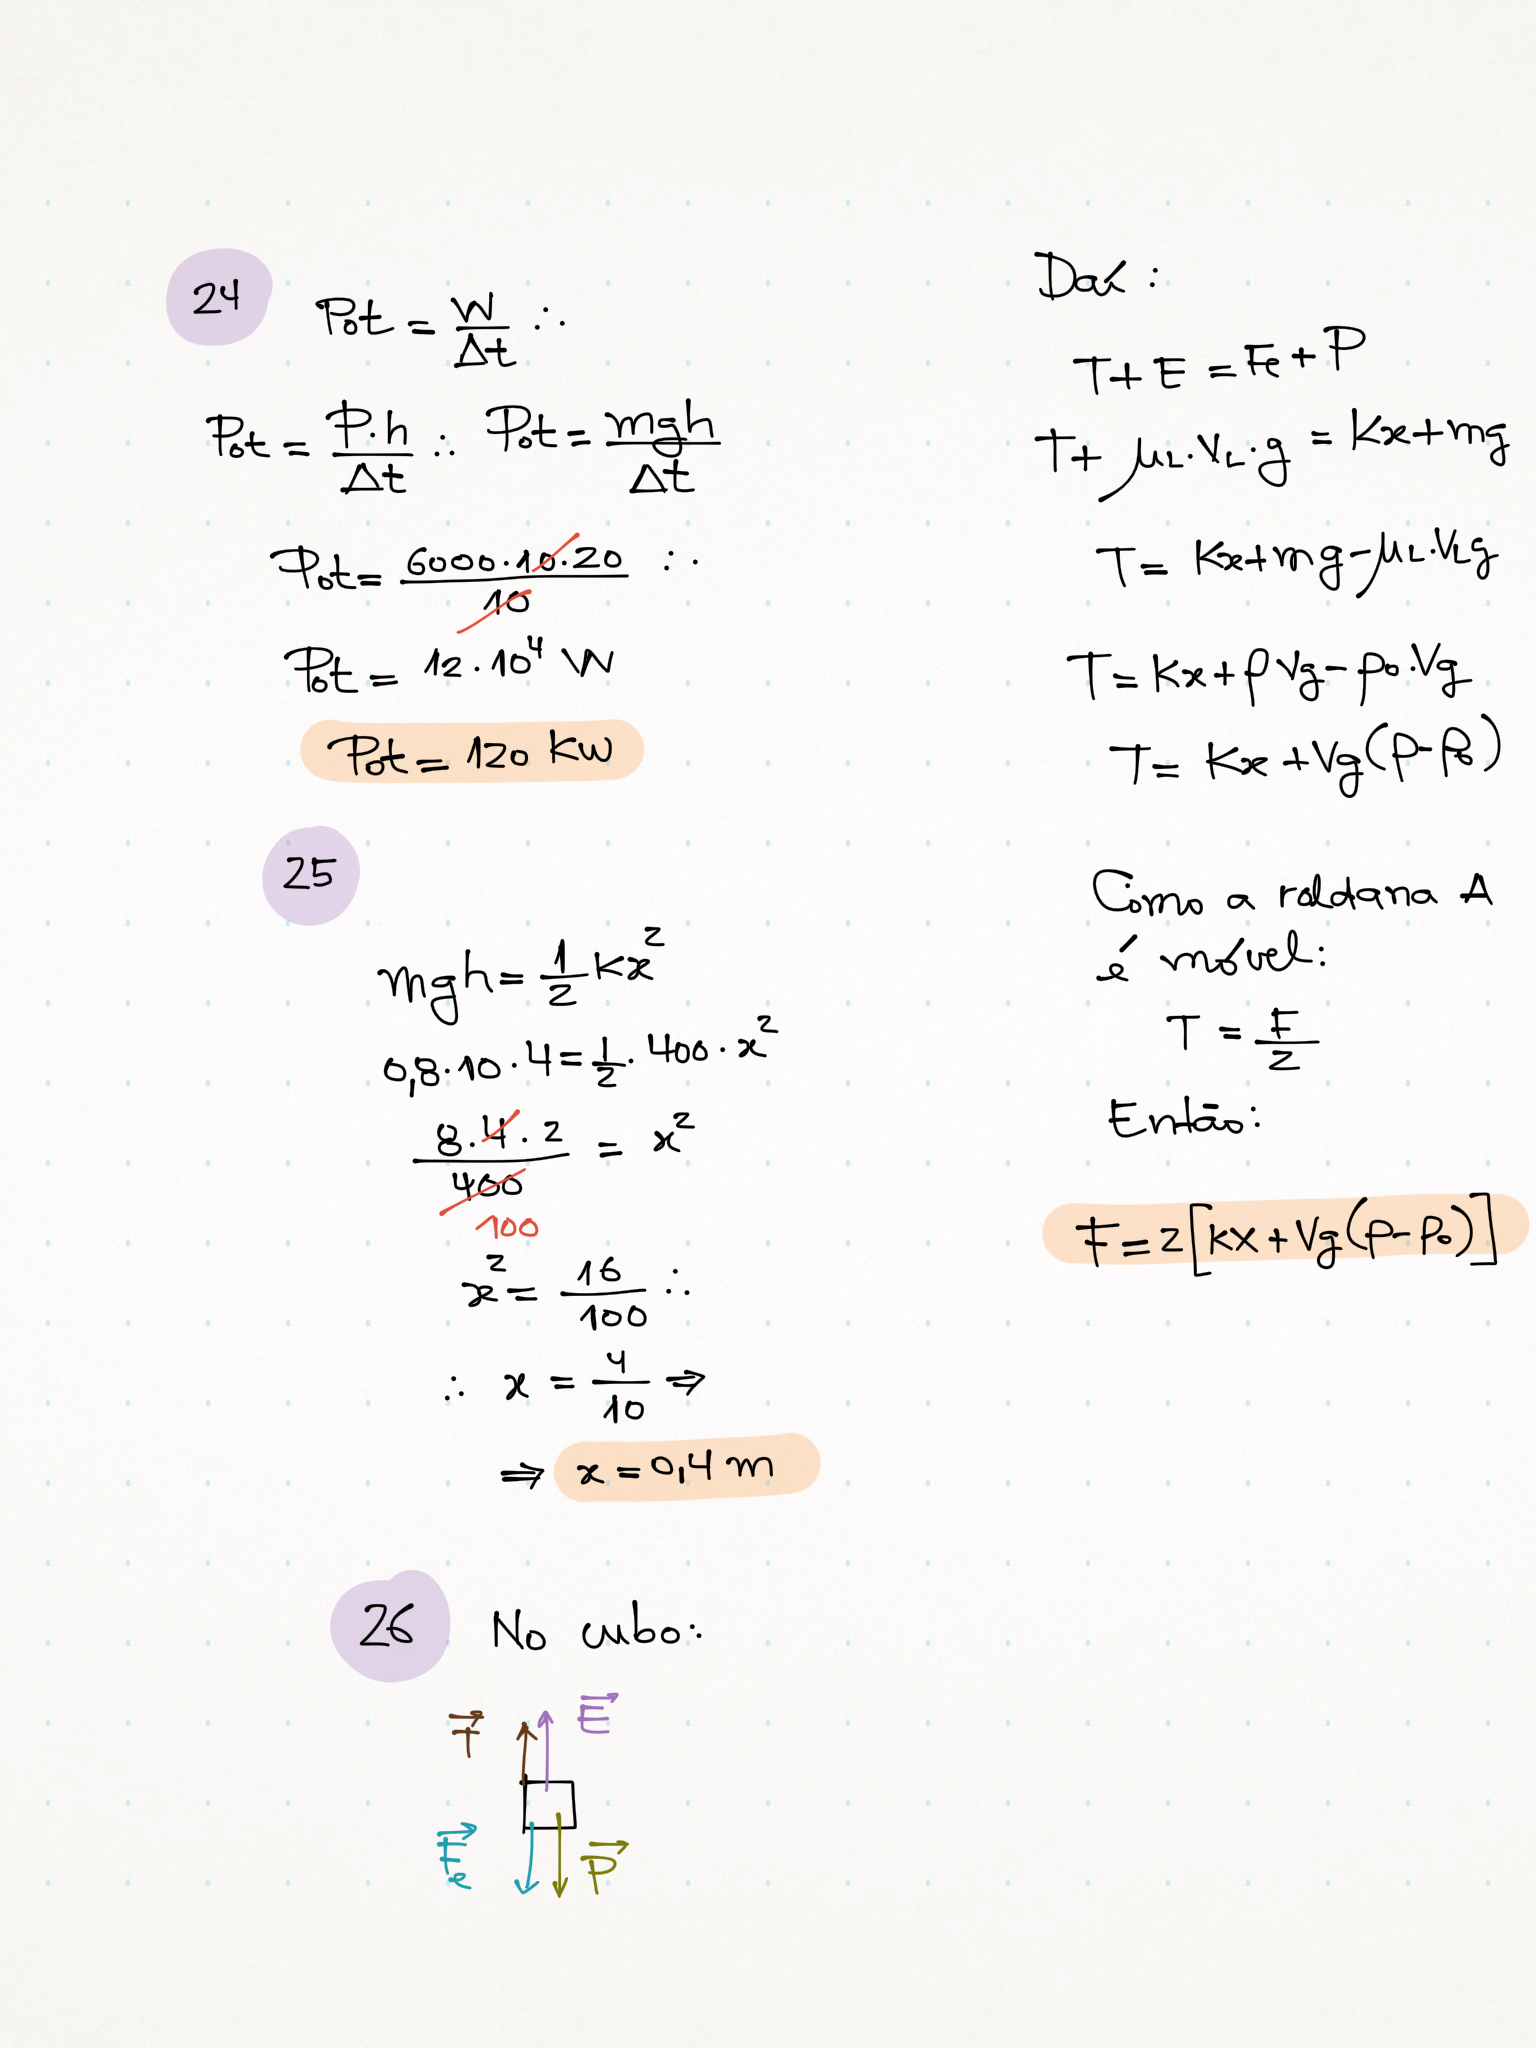 24
Pot = W/Δt ∴
Pot = P·h/Δt ∴ Pot = mgh/Δt
Pot = 6000·10·20/10 ∴
Pot = 12·10⁴ W
Pot = 120 KW
25
mgh = 1/2 Kx²
0,8·10·4 = 1/2·400·x²
8·4·2/400 = x²
100
x² = 16/100 ∴
∴ x = 4/10 ⇒
⇒ x = 0,4 m
26 No cubo:
T E
Fe P
Daí:
T + E = Fe + P
T + μL·VL·g = Kx + mg
T = Kx + mg - μL·VLg
T = Kx + ρVg - ρ₀·Vg
T = Kx + Vg(ρ - ρ₀)
Como a roldana A
é móvel:
T = F/2
Então:
F = 2[KX + Vg(ρ - ρ₀)]